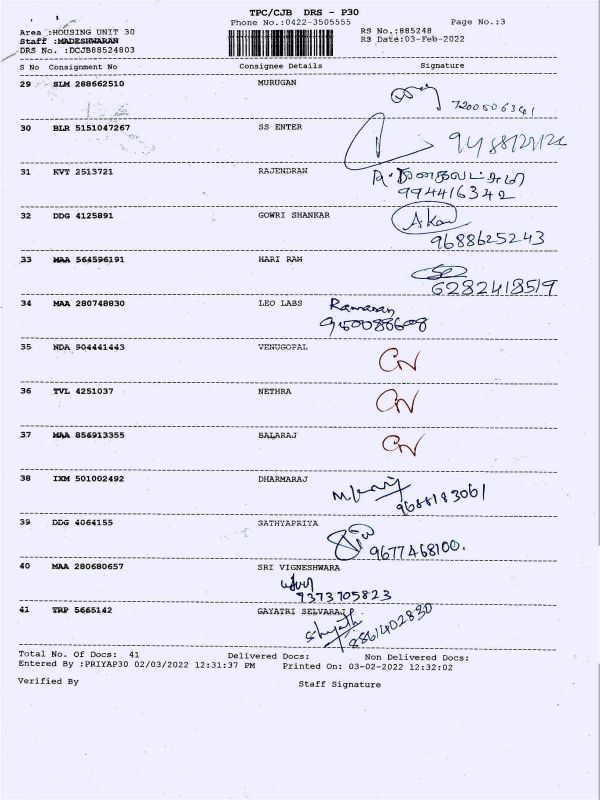 TPC/CJB DRS - P30
Phone No.:0422-3505555 Page No.:3
Area :HOUSING UNIT 30 RS No.:885248
Staff :MADESHWARAN RS Date:03-Feb-2022
DRS No. :DCJB88524803
S No Consignment No Consignee Details Signature
29 SLM 288662510 MURUGAN
7200506341
30 BLR 5151047267 SS ENTER
31 KVT 2513721 RAJENDRAN
994416342
32 DDG 4125891 GOWRI SHANKAR
9688625243
33 MAA 564596191 HARI RAM
6282418519
34 MAA 280748830 LEO LABS
35 NDA 904441443 VENUGOPAL
CN
36 TVL 4251037 NETHRA
CN
37 MAA 856913355 BALARAJ
CN
38 IXM 501002492 DHARMARAJ
9688183061
39 DDG 4064155 SATHYAPRIYA
9677468100.
40 MAA 280680657 SRI VIGNESHWARA
9373705823
41 TRP 5665142 GAYATRI SELVARAJ
8861402830
Total No. Of Docs: 41 Delivered Docs: Non Delivered Docs:
Entered By :PRIYAP30 02/03/2022 12:31:37 PM Printed On: 03-02-2022 12:32:02
Verified By Staff Signature